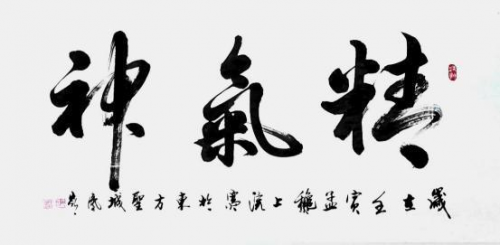 精氣神
歲在壬寅孟穐上浣寫於東方聖城